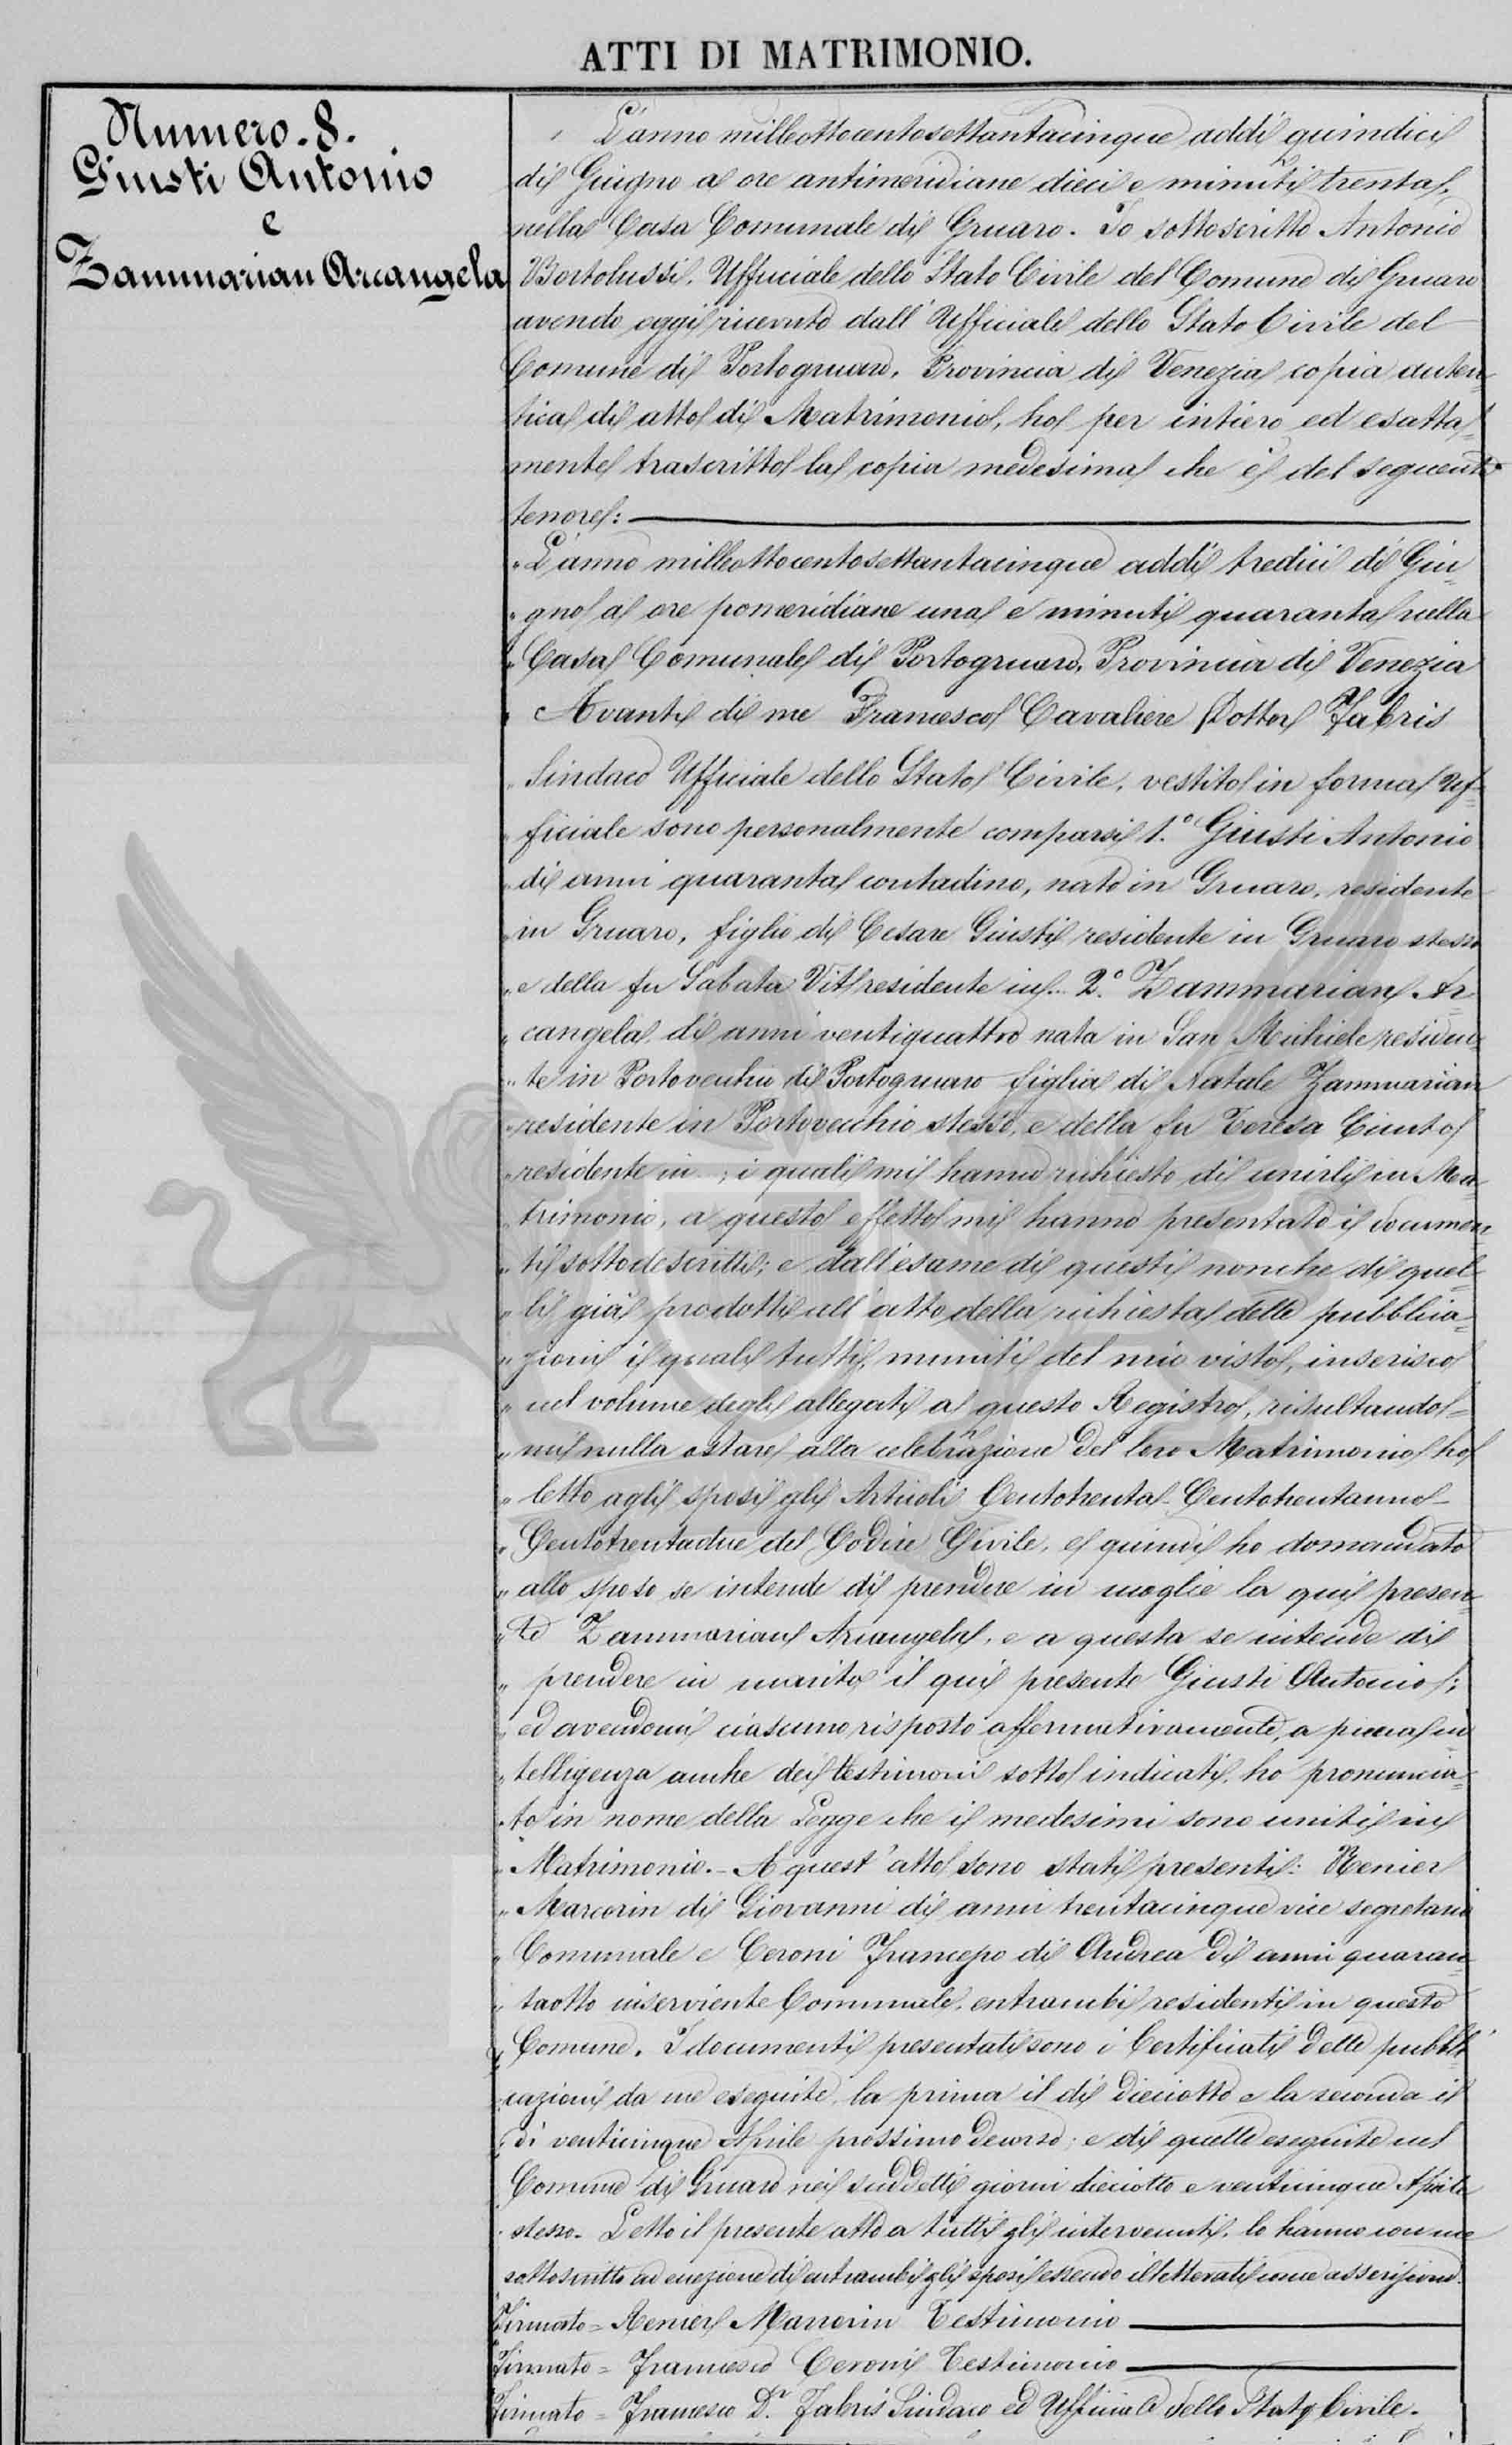 ATTI DI MATRIMONIO.
Numero. 8.
Giusti Antonio
e
Zammarian Arcangela
L'anno milleottocentosettantacinque addì quindici
di Giugno a ore antimeridiane dieci e minuti trenta,
nella Casa Comunale di Gruaro. Io sottoscritto Antonio
Bortolussi, Ufficiale dello Stato Civile del Comune di Gruaro
avendo oggi ricevuto dall'Ufficiale dello Stato Civile del
Comune di Portogruaro, Provincia di Venezia copia auten=
tica di atto di Matrimonio, ho per intiero ed esatta=
mente trascritto la copia medesima che è del seguente
tenore:
"L'anno milleottocentosettantacinque addì tredici di Giu=
"gno a ore pomeridiane una e minuti quaranta nella
"Casa Comunale di Portogruaro, Provincia di Venezia
"Avanti di me Francesco Cavaliere Dottor Fabris
"Sindaco Ufficiale dello Stato Civile, vestito in forma Uf=
"ficiale sono personalmente comparsi 1.° Giusti Antonio
"di anni quaranta contadino, nato in Gruaro, residente
"in Gruaro, figlio di Cesare Giusti residente in Gruaro stesso
"e della fu Sabata Vit residente in... 2.° Zammarian Ar=
"cangela, di anni ventiquattro nata in San Michiele residen=
"te in Portovecchio di Portogruaro figlia di Natale Zammarian
"residente in Portovecchio stesso, e della fu Teresa Cinto
"residente in...; i quali mi hanno richiesto di unirli in Ma=
"trimonio, a questo effetto mi hanno presentato i documen
"ti sottodescritti; e dall'esame di questi nonche di quel=
"li già prodotti all'atto della richiesta delle pubblica=
"zioni i quali tutti, muniti del mio visto, inserisco
"nel volume degli allegati a questo Registro, risultando=
"mi nulla ostare alla celebrazione del loro Matrimonio ho
"letto agli sposi gli Articoli Centotrenta - Centotrentauno -
"Centotrentadue del Codice Civile, e quindi ho domandato
"allo sposo se intende di prendere in moglie la qui presen=
"te Zammarian Arcangela, e a questa se intende di
"prendere in marito il qui presente Giusti Antonio;
"ed avendomi ciascuno risposto affermativamente, a piena in
"telligenza anche dei testimoni sotto indicati, ho pronuncia=
"to in nome della Legge che i medesimi sono uniti in
"Matrimonio. - A quest'atto sono stati presenti: Renier
"Marcorin di Giovanni di anni trentacinque vice segretario
"Comunale e Ceroni Francesco di Andrea di anni quaran=
"taotto inserviente Comunale, entrambi residenti in questo
"Comune. I documenti presentati sono i Certificati delle pubbli=
"cazioni da me eseguite, la prima il dì dieciotto e la seconda il
"dì venticinque Aprile prossimo decorso; e di quelle eseguite nel
"Comune di Gruaro nei suddetti giorni dieciotto e venticinque Aprile
"stesso. Letto il presente atto a tutti gli intervenuti, lo hanno con me
sottoscritto ad eccezione di entrambi gli sposi essendo illetterati come asseriscono.
Firmato = Renier Marcorin Testimonio
Firmato = Francesco Ceroni Testimonio
Firmato = Francesco Dr. Fabris Sindaco ed Ufficiale dello Stato Civile.